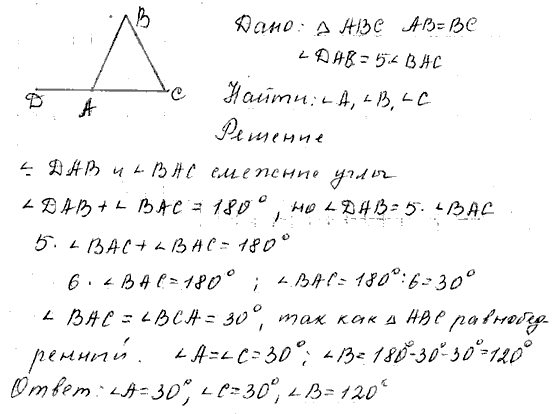 B
D
A
C
Дано: △ ABC AB=BC
∠DAB=5∠BAC
Найти: ∠A, ∠B, ∠C
Решение
∠ DAB и ∠BAC смежные углы
∠DAB+∠ BAC=180°, но ∠DAB=5·∠BAC
5·∠BAC+∠BAC=180°
6·∠BAC=180° ; ∠BAC=180°:6=30°
∠ BAC=∠BCA=30°, так как △ ABC равнобед
ренный. ∠A=∠C=30°; ∠B=180°-30°-30°=120°
Ответ: ∠A=30°, ∠C=30°, ∠B=120°